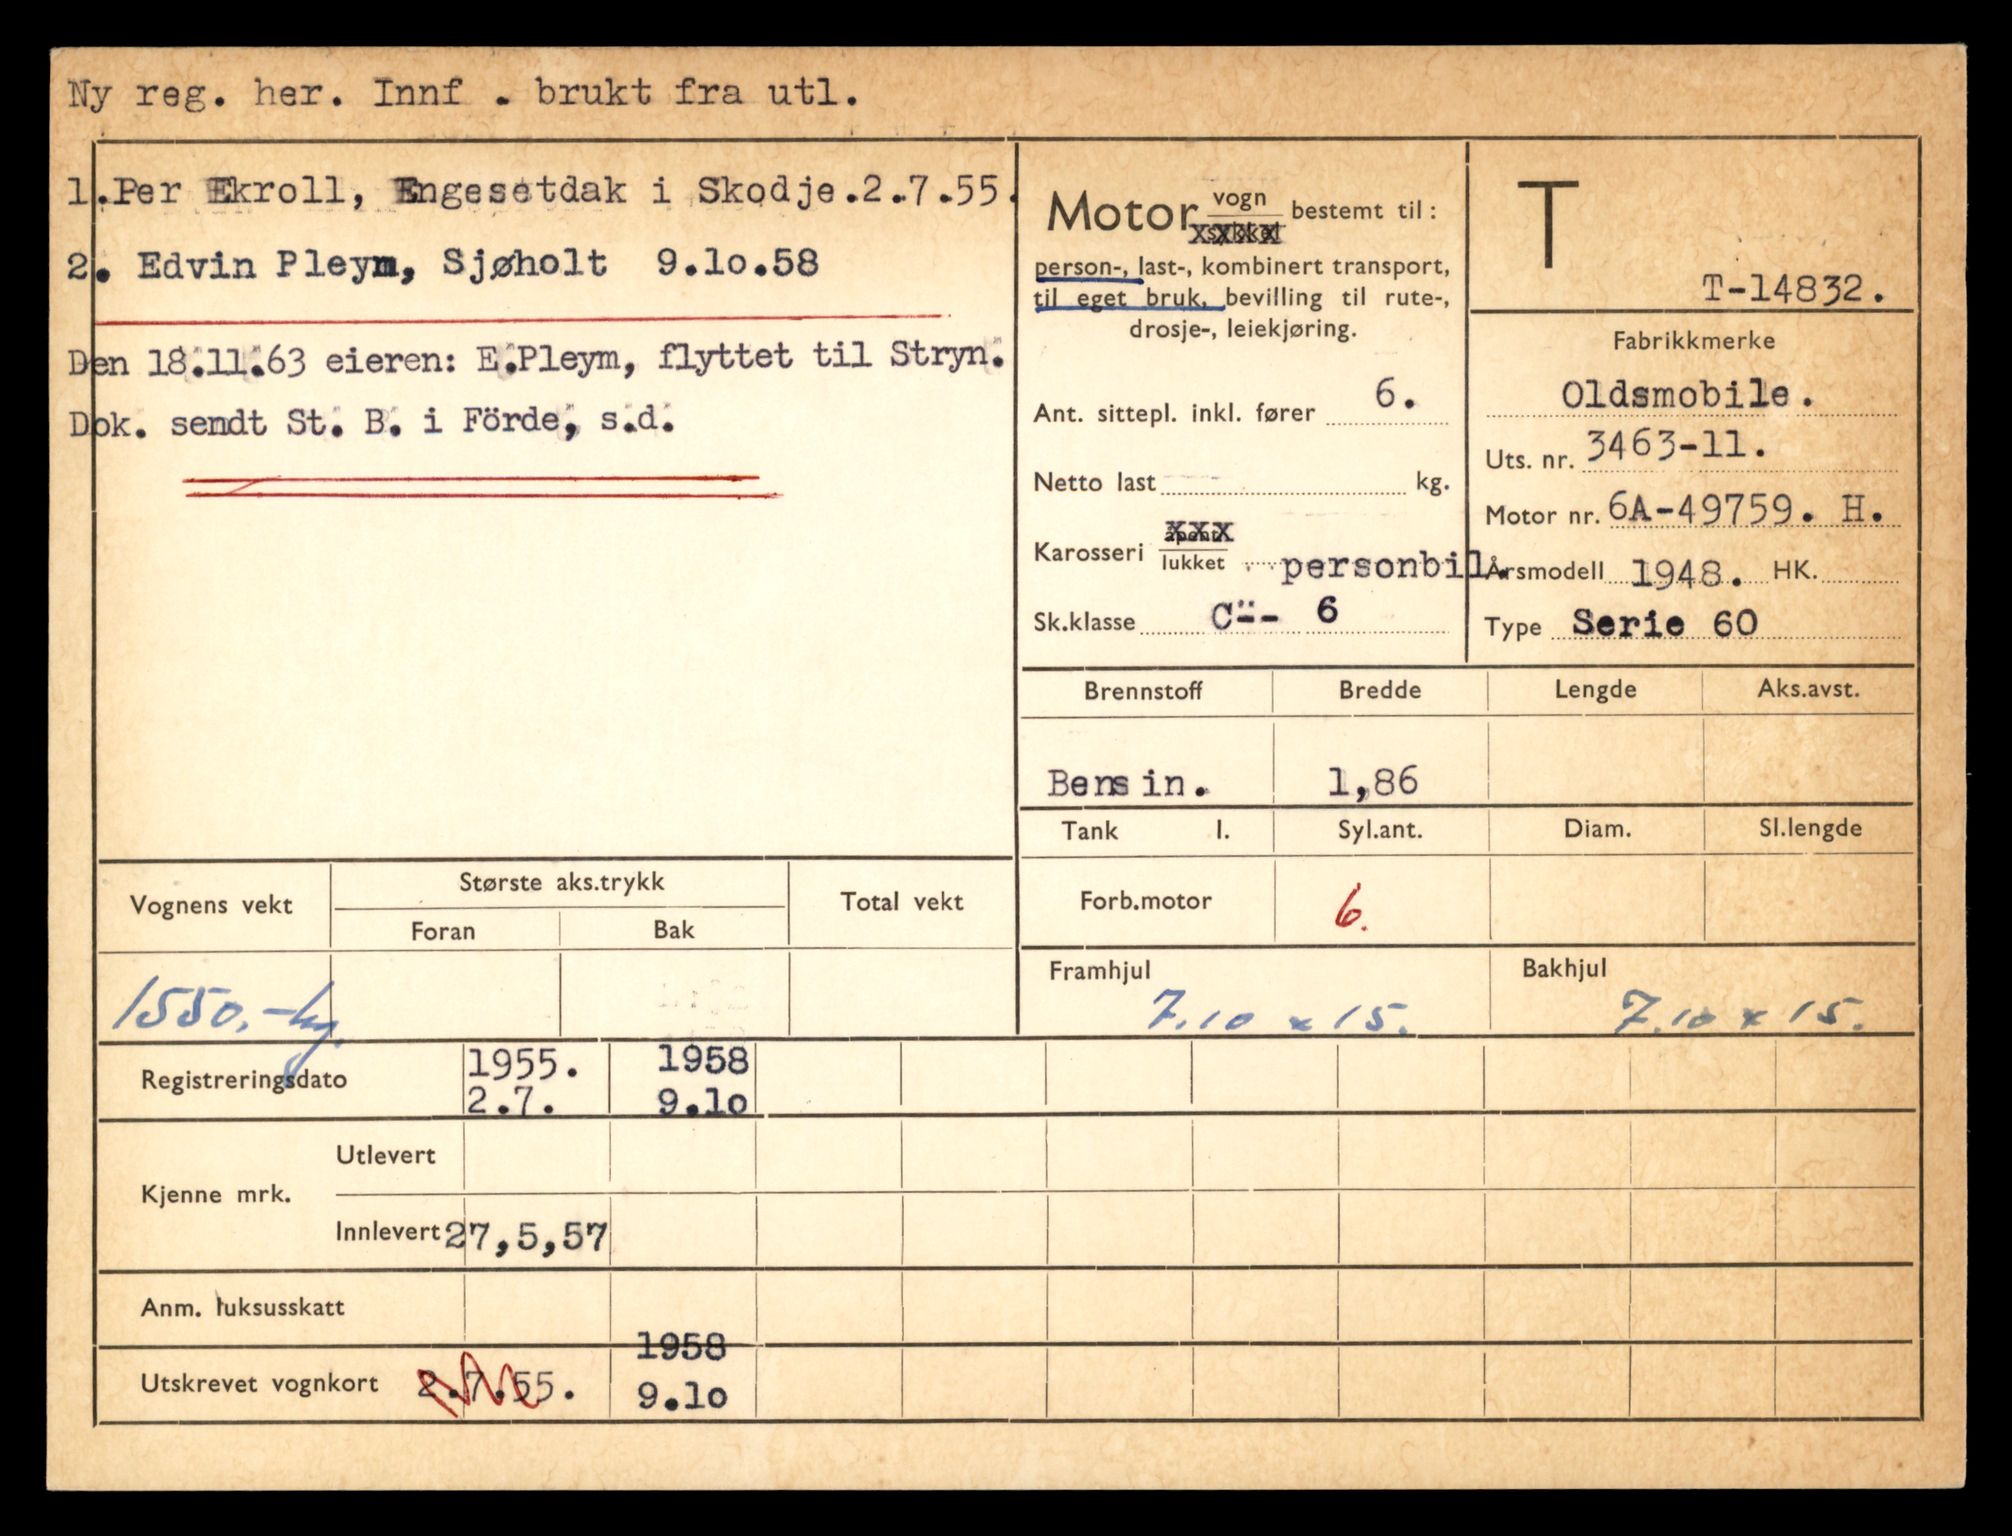 Ny reg. her. Innf . brukt fra utl.
1.Per Ekroll, Engesetdak i Skodje.2.7.55.
2. Edvin Pleym, Sjøholt 9.1o.58
Den 18.11.63 eieren: E.Pleym, flyttet til Stryn.
Dok. sendt St. B. i Förde, s.d.
Motor vogn bestemt til:
person-, last-, kombinert transport,
til eget bruk, bevilling til rute-,
drosje-, leiekjøring.
Ant. sittepl. inkl. fører 6.
Netto last kg.
Karosseri åpent
lukket personbil.
Sk.klasse C-- 6
T
T-14832.
Fabrikkmerke
Oldsmobile.
Uts. nr. 3463-11.
Motor nr. 6A-49759. H.
Årsmodell 1948. HK.
Type Serie 60
Brennstoff Bredde Lengde Aks.avst.
Bensin. 1,86
Tank l. Syl.ant. Diam. Sl.lengde
Forb.motor 6.
Framhjul Bakhjul
7.10 x 15. 7.10 x 15.
Vognens vekt Største aks.trykk Total vekt
Foran Bak
1550.-kg.
Registreringsdato 1955. 1958
2.7. 9.1o
Kjenne mrk. Utlevert
Innlevert 27,5,57
Anm. luksusskatt
1958
Utskrevet vognkort 2.7.55. 9.1o